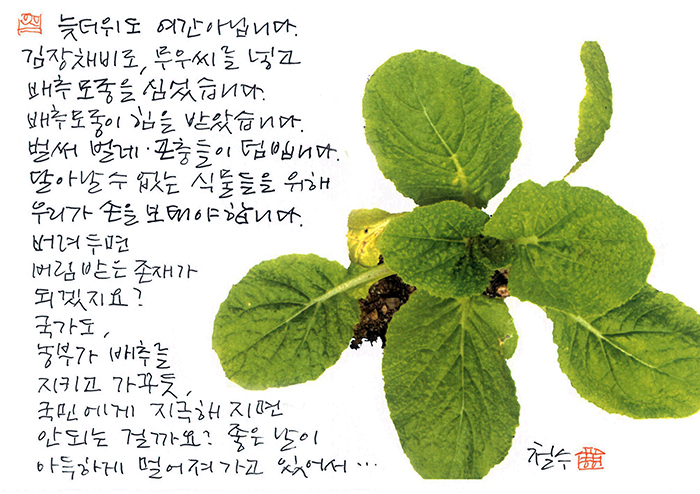 늦더위도 여간아닙니다.
김장채비로, 무우씨를 넣고
배추모종을 심었습니다.
배추모종이 힘을 받았습니다.
벌써 벌레·곤충들이 덤빕니다.
달아날 수 없는 식물들을 위해
우리가 손을 보태야합니다.
버려두면
버림받는 존재가
되겠지요?
국가도,
농부가 배추를
지키고 가꾸듯,
국민에게 지극해지면
안되는 걸까요? 좋은 날이
아득하게 멀어져가고 있어서…
철수